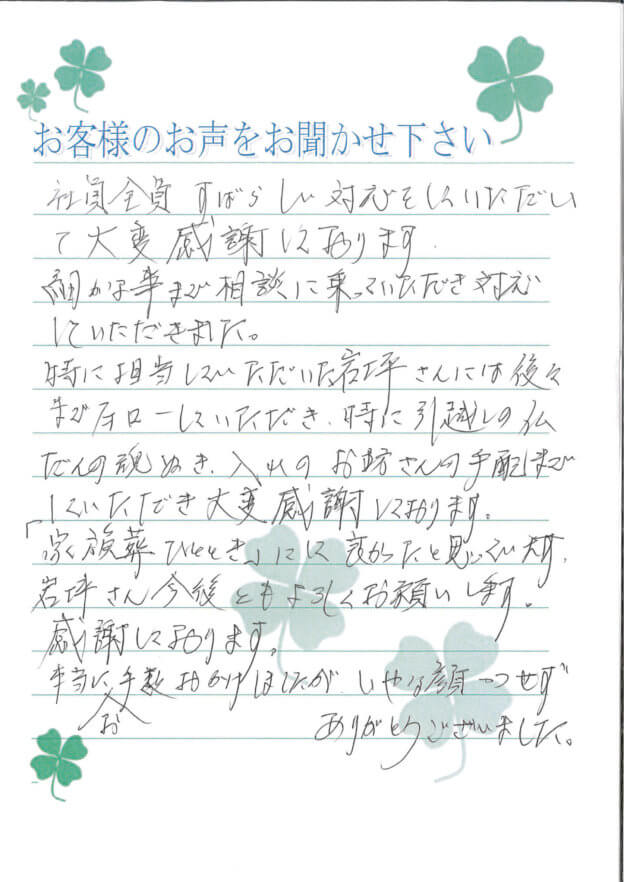 お客様のお声をお聞かせ下さい
社員全員 すばらしい対応をしていただい
て大変感謝しております.
細かな事まで相談に乗っていただき対応
していただきました。
特に担当していただいた岩坪さんには後々
までフォローしていただき、特に引越しの仏
だんの魂ぬき、入れのお坊さんの手配まで
していただき大変感謝しております。
「家族葬ひととき」にして良かったと思っています.
岩坪さん今後ともよろしくお願いします。
感謝しております。
本当にお手数おかけしましたが、いやな顔一つせず
ありがとうございました。